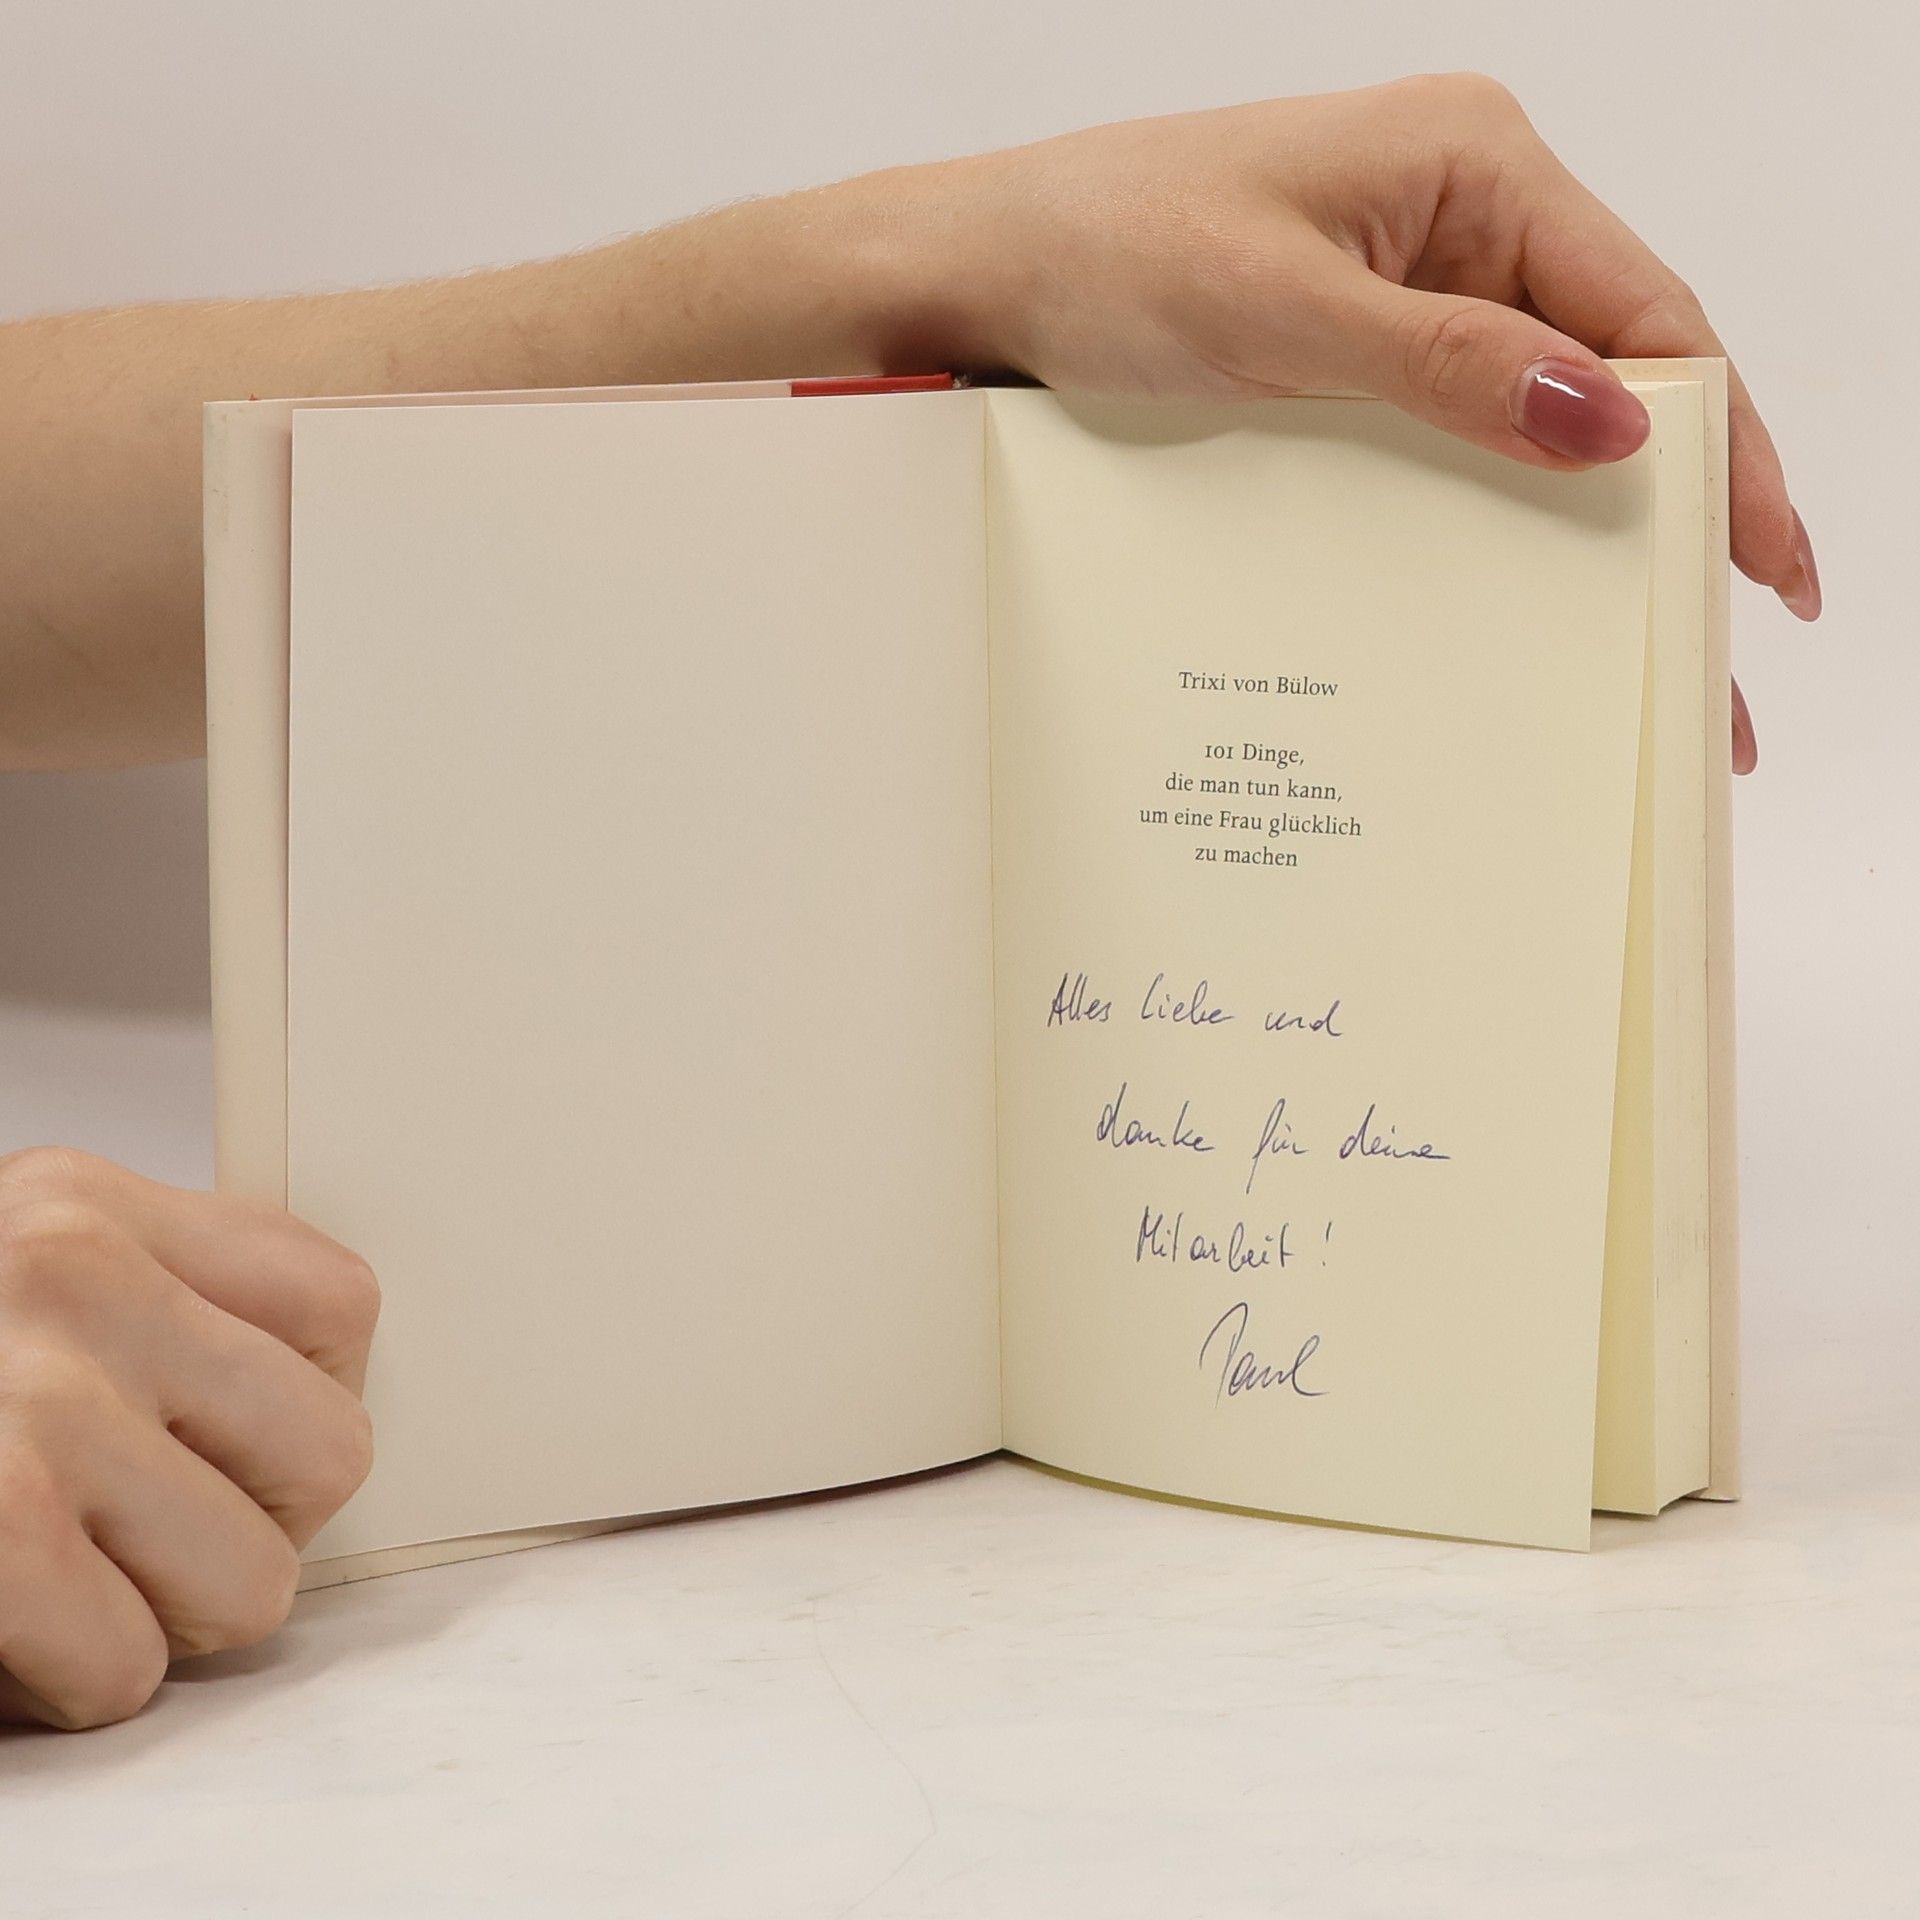 Trixi von Bülow
101 Dinge,
die man tun kann,
um eine Frau glücklich
zu machen
Alles Liebe und
danke für deine
Mitarbeit!
Paul